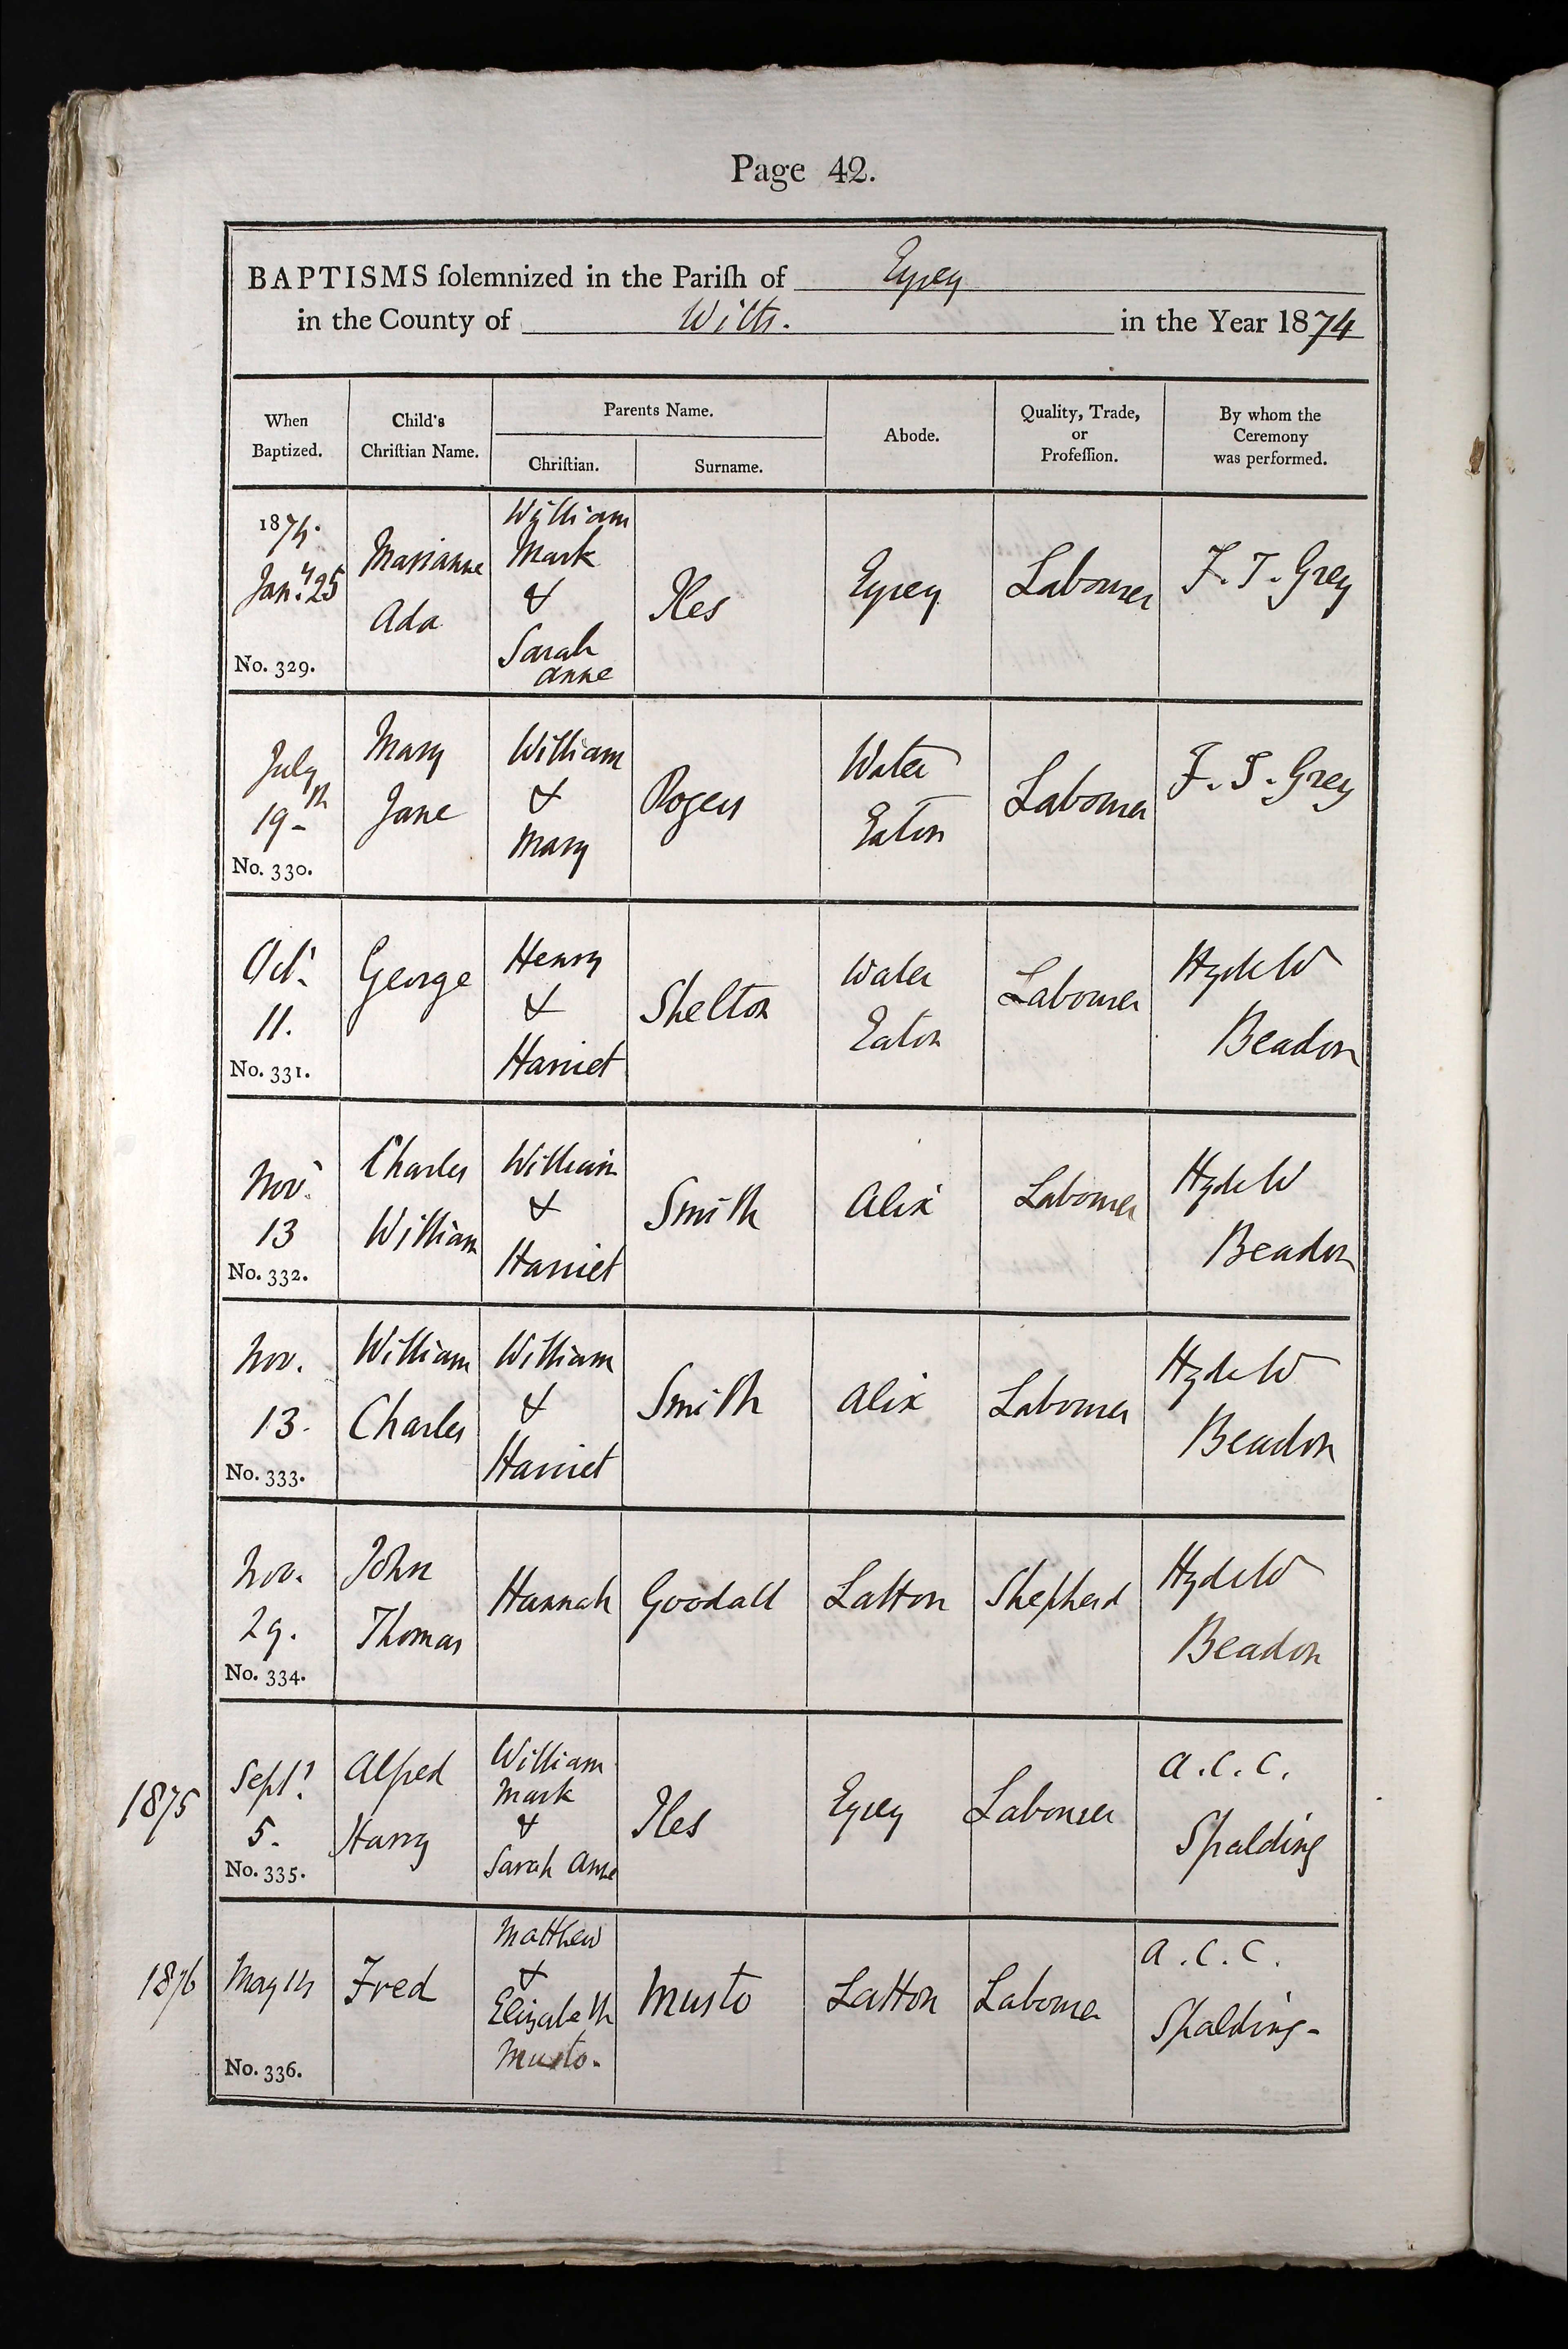 Page 42.
BAPTISMS ſolemnized in the Pariſh of Eysey
in the County of Wilts. in the Year 1874
When Baptized.
Child's Chriſtian Name.
Parents Name.
Chriſtian.
Surname.
Abode.
Quality, Trade, or Profeſſion.
By whom the Ceremony was performed.
1874.
Jany. 25
No. 329.
Marianne
Ada
William
Mark
&
Sarah
Anne
Iles
Eysey
Labourer
F. T. Grey
July
19th
No. 330.
Mary
Jane
William
&
Mary
Rogers
Water
Eaton
Labourer
F. T. Grey
Oct.
11.
No. 331.
George
Henry
&
Harriet
Shelton
Water
Eaton
Labourer
Hyde W
Beadon
Nov.
13
No. 332.
Charles
William
William
&
Harriet
Smith
Alix
Labourer
Hyde W
Beadon
Nov.
13.
No. 333.
William
Charles
William
&
Harriet
Smith
Alix
Labourer
Hyde W
Beadon
Nov.
29.
No. 334.
John
Thomas
Hannah
Goodall
Latton
Shepherd
Hyde W
Beadon
1875
Sept.
5.
No. 335.
Alfred
Harry
William
Mark
&
Sarah Anne
Iles
Eysey
Labourer
A. C. C.
Spalding
1876
May 14
No. 336.
Fred
Matthew
&
Elizabeth
Musto.
Musto
Latton
Labourer
A. C. C.
Spalding-